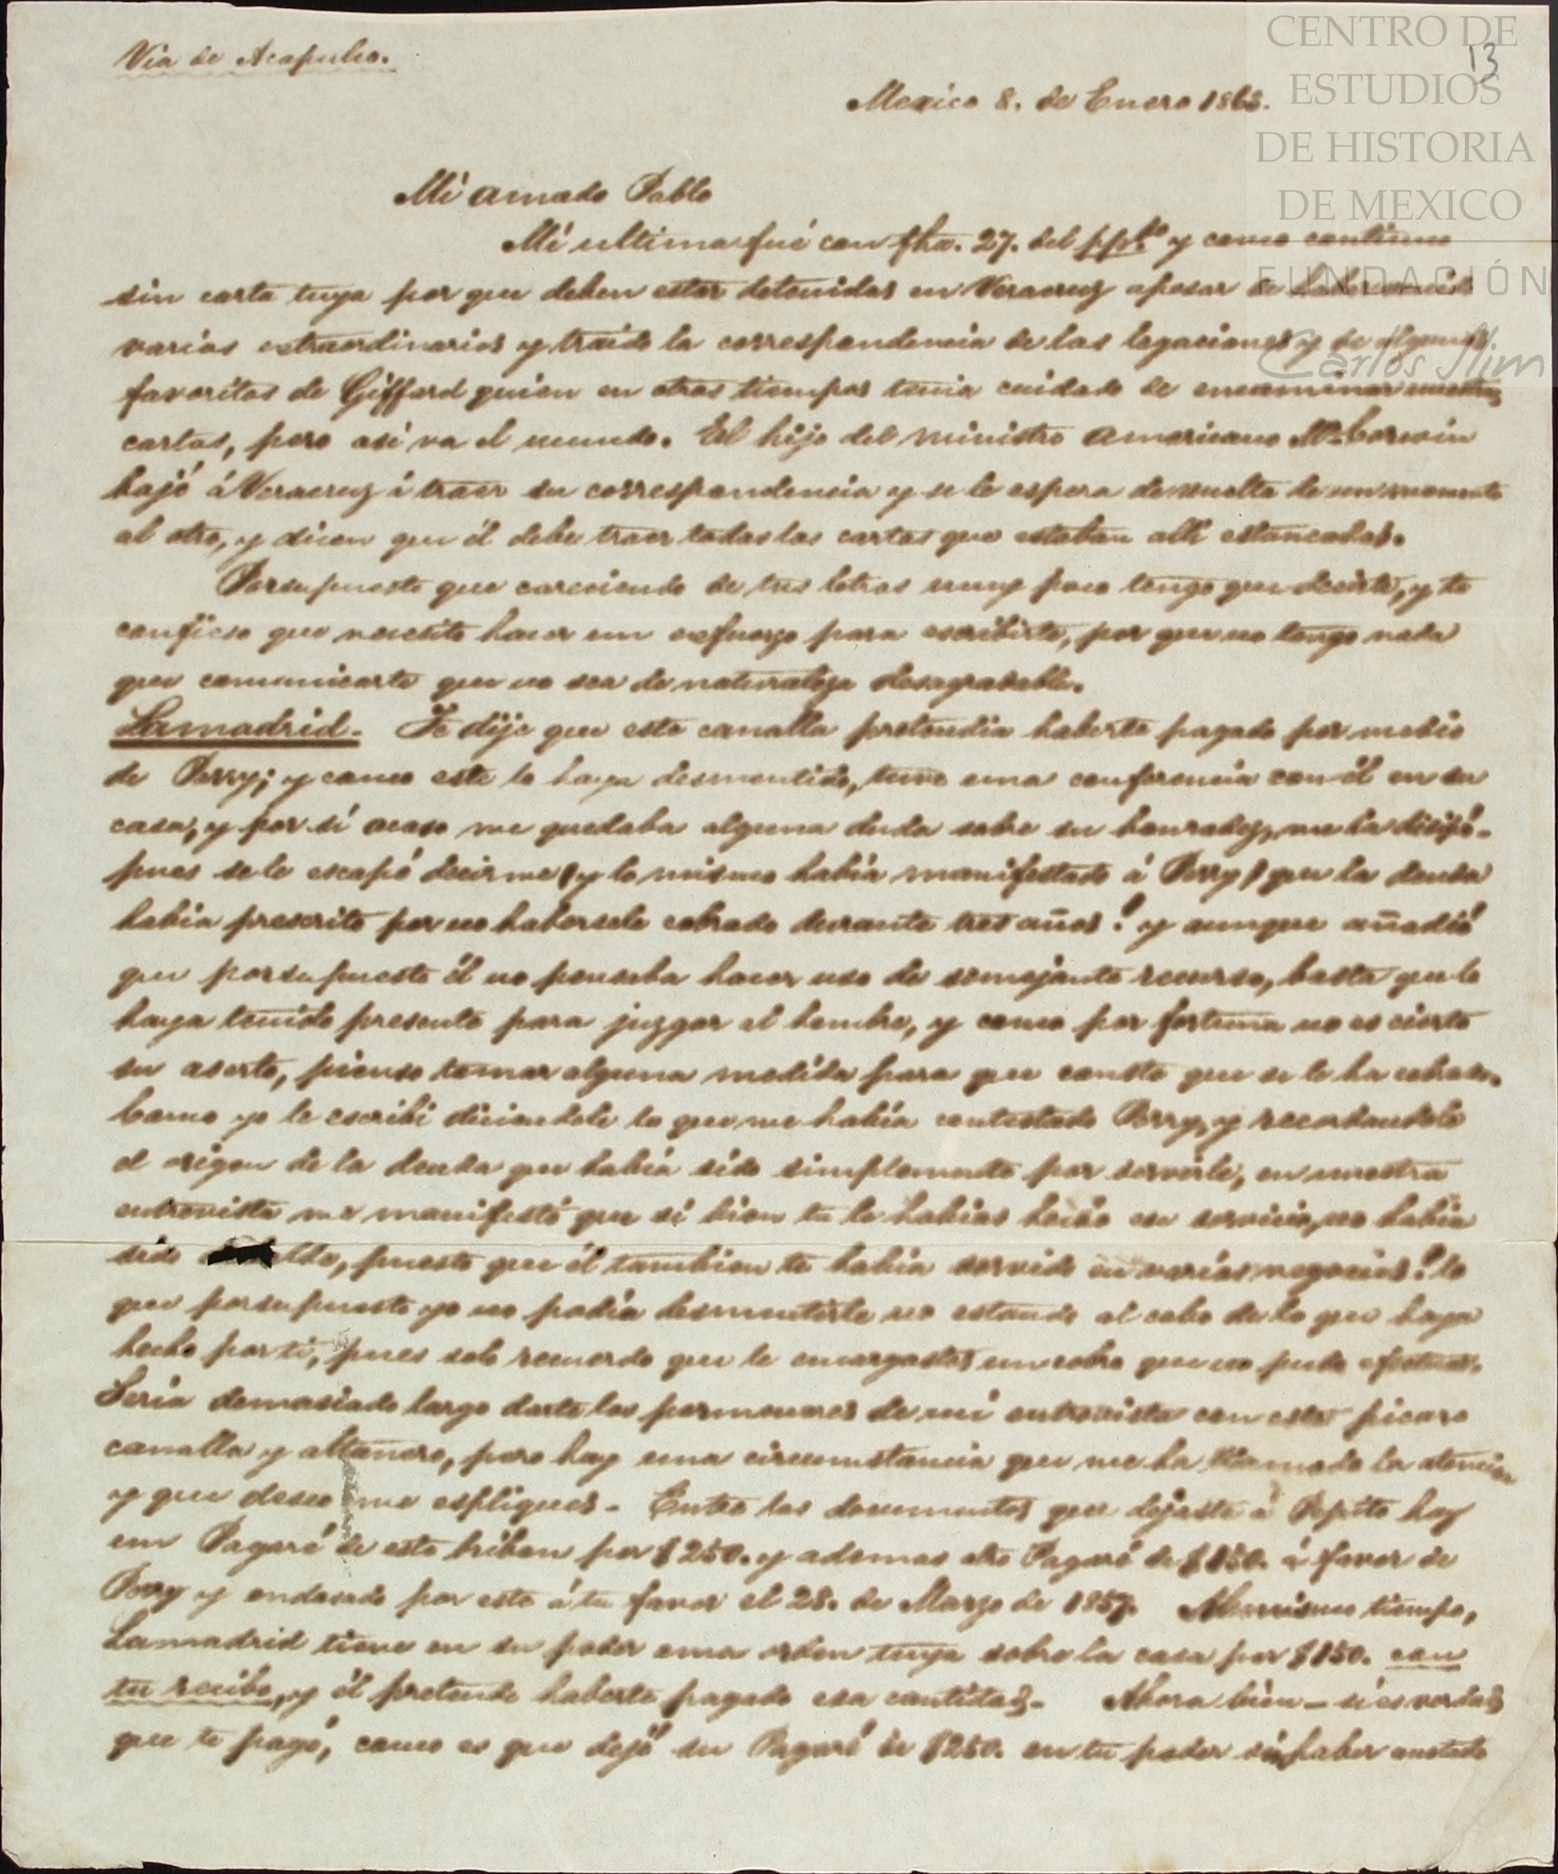 CENTRO DE
ESTUDIOS
DE HISTORIA
DE MEXICO
FUNDACIÓN
Carlos Slim
13
Via de Acapulco.
Mexico 8. de Enero 1863.
Mi amado Pablo
Mi ultima fué con fha. 27. del pp.do y como continuo
sin carta tuya por que deben estar detenidas en Veracruz apesar de
varios extraordinarios y traido la correspondencia de las legaciones y de algunos
favoritos de Gifford quien en otros tiempos tenia cuidado de encaminar nuestras
cartas, pero asi va el mundo. El hijo del ministro Americano Mr. Corwin
bajó á Veracruz á traer su correspondencia y se le espera de vuelta de un momento
al otro, y dicen que él debe traer todas las cartas que estaban alli estancadas.
Porsupuesto que careciendo de tus letras muy poco tengo que decirte, y te
confieso que necesito hacer un esfuerzo para escribirte, por que no tengo nada
que comunicarte que no sea de naturaleza desagradable.
Lamadrid. Te dije que este canalla pretendia haberte pagado por medio
de Perry; y como este lo haya desmentido, tuve una conferencia con él en su
casa, y por si acaso me quedaba alguna duda sobre su honradez, me la disipó -
pues se le escapó decirme (y lo mismo habia manifestado á Perry) que la deuda
habia prescrito por no habersele cobrado durante tres años! y aunque añadió
que porsupuesto él no pensaba hacer uso de semejante recurso, basta que lo
haya tenido presente para juzgar al hombre, y como por fortuna no es cierto
su aserto, pienso tomar alguna medida para que conste que se le ha cobrado.
Como yo le escribi diciendole lo que me habia contestado Perry, y recordandole
el origen de la deuda que habia sido simplemente por servirle, en nuestra
entrevista me manifestó que si bien tu le habias hecho ese servicio, no habia
sido, puesto que él tambien te habia servido en varios negocios! lo
que porsupuesto yo no podia desmentirle no estando al cabo de lo que haya
hecho por ti, pues solo recuerdo que le encargastes un cobro que no pudo efectuar.
Seria demasiado largo darte los pormenores de mi entrevista con este picaro
canalla y altanero, pero hay una circumstancia que me ha llamado la atencion
y que deseo me espliques. Entre los documentos que dejaste á Pepito hay
un Pagaré de este bribon por $250. y ademas otro Pagaré de $150. á favor de
Perry y endosado por este á tu favor el 28. de Marzo de 1857. Almismo tiempo,
Lamadrid tiene en su poder una orden tuya sobre la casa por $150. con
tu recibo, y él pretende haberte pagado esa cantidad. Ahora bien - si es verdad
que te pagó, como es que dejó su Pagaré de $250. en tu poder sin haber anotado